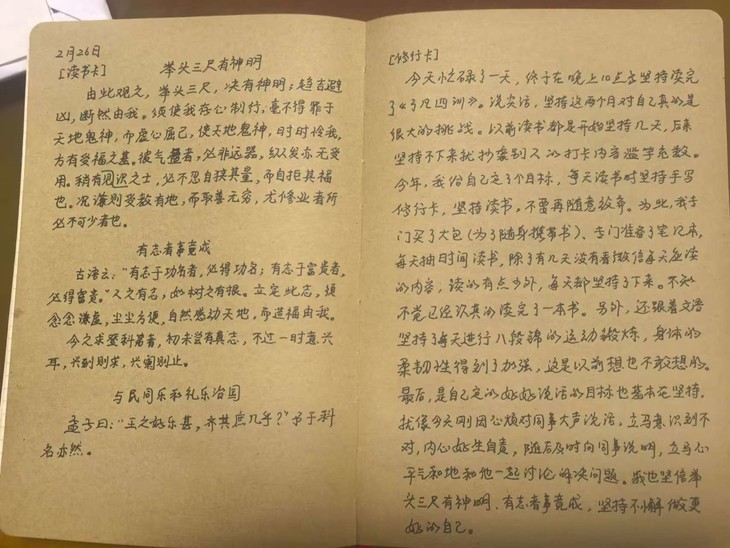 2月26日
[读书卡] 举头三尺有神明
由此观之，举头三尺，决有神明；趋吉避
凶，断然由我。须使我存心制行，毫不得罪于
天地鬼神，而虚心屈己，使天地鬼神，时时怜我，
方有受福之基。彼气盈者，必非远器，纵发亦无受
用。稍有见识之士，必不忍自狭其量，而自拒其福
也。况谦则受教有地，而取善无穷，尤修业者所
必不可少者也。
有志者事竟成
古语云："有志于功名者，必得功名；有志于富贵者，
必得富贵。"人之有志，如树之有根。立定此志，须
念念谦虚，尘尘方便，自然感动天地，而造福由我。
今之求登科第者，初未尝有真志，不过一时意兴
耳，兴到则求，兴阑则止。
与民同乐和礼乐治国
孟子曰："王之好乐甚，齐其庶几乎？"予于科
名亦然。
[修行卡]
今天忙碌了一天，终于在晚上10点多坚持读完
了《了凡四训》。说实话，坚持这两个月对自己真的是
很大的挑战。以前读书都是开始坚持几天，后来
坚持不下来就抄袭别人的打卡内容滥竽充数。
今年，我给自己定了个目标，每天读书时坚持手写
修行卡，坚持读书，不要再随意放弃。为此，我专
门买了大包（为了随身携带书）、专门准备了笔记本，
每天抽时间读书，除了有几天没有看微信每天应读
的内容，读的有点少外，每天都坚持了下来。不知
不觉已经认真的读完了一本书。另外，还跟着文浩
坚持了每天进行八段锦的运动锻炼，身体的
柔韧性得到了加强，这是以前想也不敢想的。
最后，是自己定的好好说话的目标也基本在坚持，
就像今天刚因心烦对同事大声说话，立马意识到不
对，内心好生自责，随后及时向同事说明，立马心
平气和地和他一起讨论解决问题。我也坚信举
头三尺有神明、有志者事竟成，坚持不懈做更
好的自己。